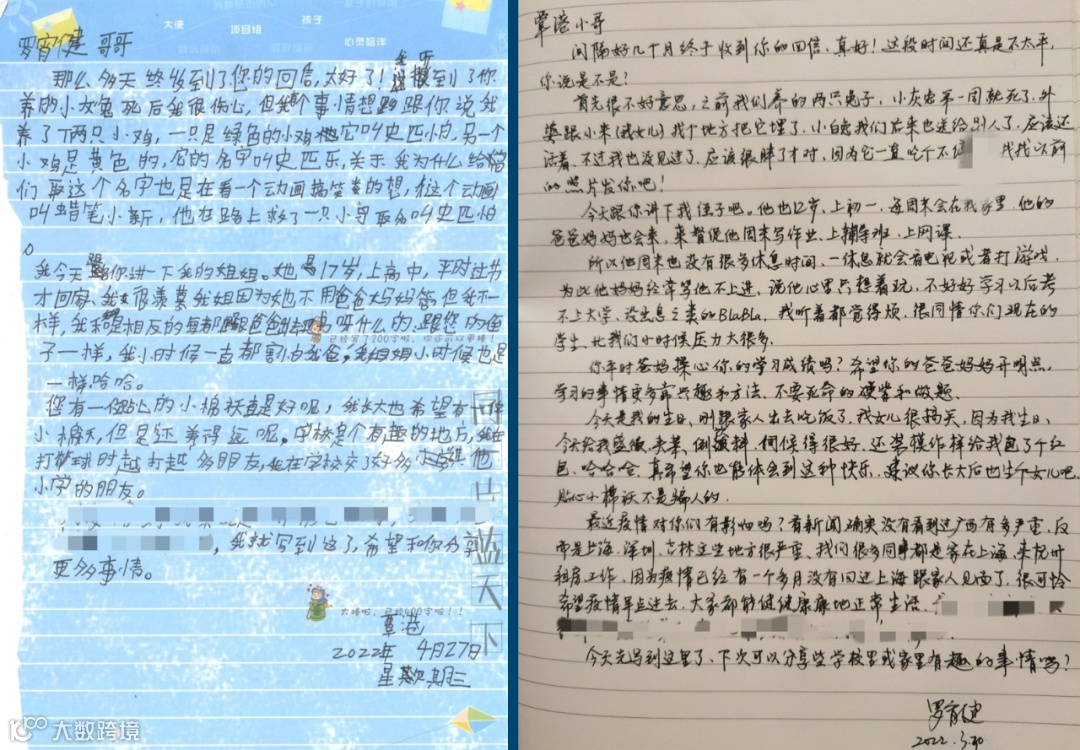 大使
项目组
孩子
心灵陪伴
罗育健 哥哥
那么多天终收到了您的回信,太好了!我听到了你
养的小灰兔死后我很伤心,但我有个事情想跟你说我
养了两只小鸡,一只是绿色的小鸡它叫史匹怕,另一个
小鸡是黄色的,它的名字叫史匹乐,关于我为什么给它
们取这个名字也是在看一个动画搞笑类的想,这个动画
叫蜡笔小新,他在路上救了一只小鸟取名叫史匹怕
。
我今天跟你讲一下我的姐姐。她是17岁,上高中,平时过节
才回家,我很羡慕我姐因为她不用爸爸妈妈管,但我不一
样,我和姐相反的每都跟爸爸呀什么的,跟您的侄
子一样,我小时候一直都割,我姐姐小时候也是
一样哈哈。
您有一个贴心的小棉袄真是好呢,我长大也希望有一件
小棉袄,但是还养得远呢。学校是个有趣的地方,我在
打球时越打越多朋友,我在学校交了好多其他
小学的朋友。
,我就写到这了,希望和你分享
更多事情。
同一片蓝天下
覃港
2022年 4月27日
星期三
覃港小哥
间隔好几个月终于收到你的回信,真好!这段时间还真是不太平,
你说是不是?
首先很不好意思,之前我们养的两只兔子,小灰兔第一周就死了,外
婆跟小米(我女儿)找个地方把它埋了,小白兔我们后来也送给别人了,应该还
活着,不过我也没见过了,应该很胖了才对,因为它一直吃个不停 我找以前
的照片发你吧!
今天跟你讲下我侄子吧。他也12岁,上初一,每周末会在我家里,他的
爸爸妈妈也会来,来督促他周末写作业、上辅导班、上网课。
所以他周末也没有很多休息时间、一休息就会看电视或者打游戏
为此他妈妈经常骂他不上进,说他心里只想着玩,不好好学习以后考
不上大学,没出息之类的BlaBla,我听着都觉得烦,很同情你们现在的
学生,比我们小时候压力大很多.
你平时爸妈操心你的学习成绩吗?希望你的爸爸妈妈开明点,
学习的事情更多靠兴趣和方法,不要死命的硬背和做题。
今天是我的生日,刚跟家人出去吃饭了,我女儿很搞笑,因为我生日,
今天给我盛饭、夹菜、倒饮料、伺候得很好,还装模作样给我包了个红
包,哈哈哈,真希望你也能体会到这种快乐,建议你长大后也生个女儿吧,
贴心小棉袄不是骗人的.
最近疫情对你们有影响吗?看新闻确实没有看到过广西有多严重,反
而是上海、深圳、吉林这些地方很严重,我们很多同事都是家在上海,来杭州
租房工作,因为疫情已经有一个多月没有回过上海跟家人见面了,很可怜
希望疫情早点过去,大家都能健健康康地正常生活,
今天先写到这里了,下次可以分享些学校里或家里有趣的事情吗?
罗育健
2022.3.30
大数跨境